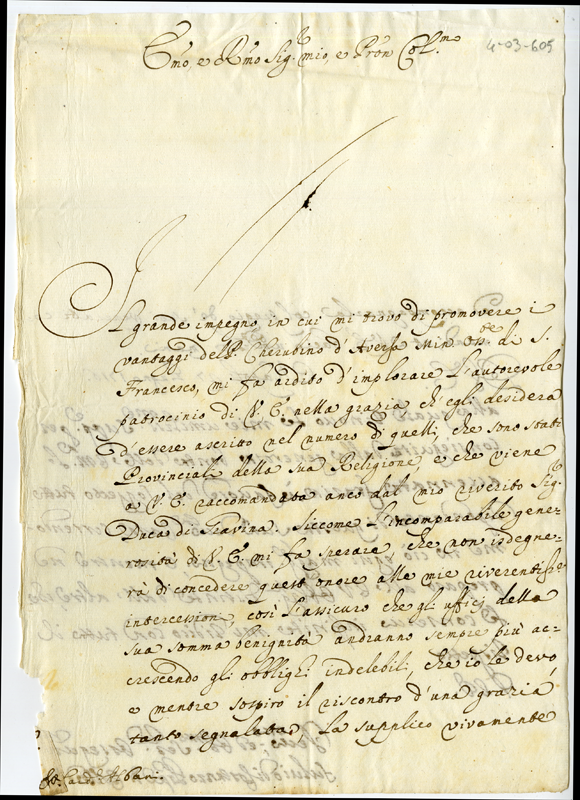 4-03-605
Emo, e Rmo Sig.r mio, e Pron Col.mo
Il grande impegno in cui mi trovo di promovere i
vantaggi del P. Cherubino d'Aversa Min. Oss.te di S.
Francesco, mi fa ardito d'implorare l'autorevole
patrocinio di V. E. nella grazia ch'egli desidera
d'essere ascritto nel numero di quelli, che sono stati
Provinciali della sua Religione, e che viene
a V. E. raccomandata anco dal mio riverito Sig.r
Duca di Gravina. Siccome l'incomparabile gene-
rosità di V. E. mi fa sperare, che non isdegne-
rà di concedere quest'onore alle mie riverentisse
intercessioni, così l'assicuro che gli ufficj della
sua somma benignità andranno sempre più ac-
crescendo gli obblighi indelebili, che io le devo
e mentre sospiro il riscontro d'una grazia
tanto segnalata, La supplico vivamente
Card. Albani.